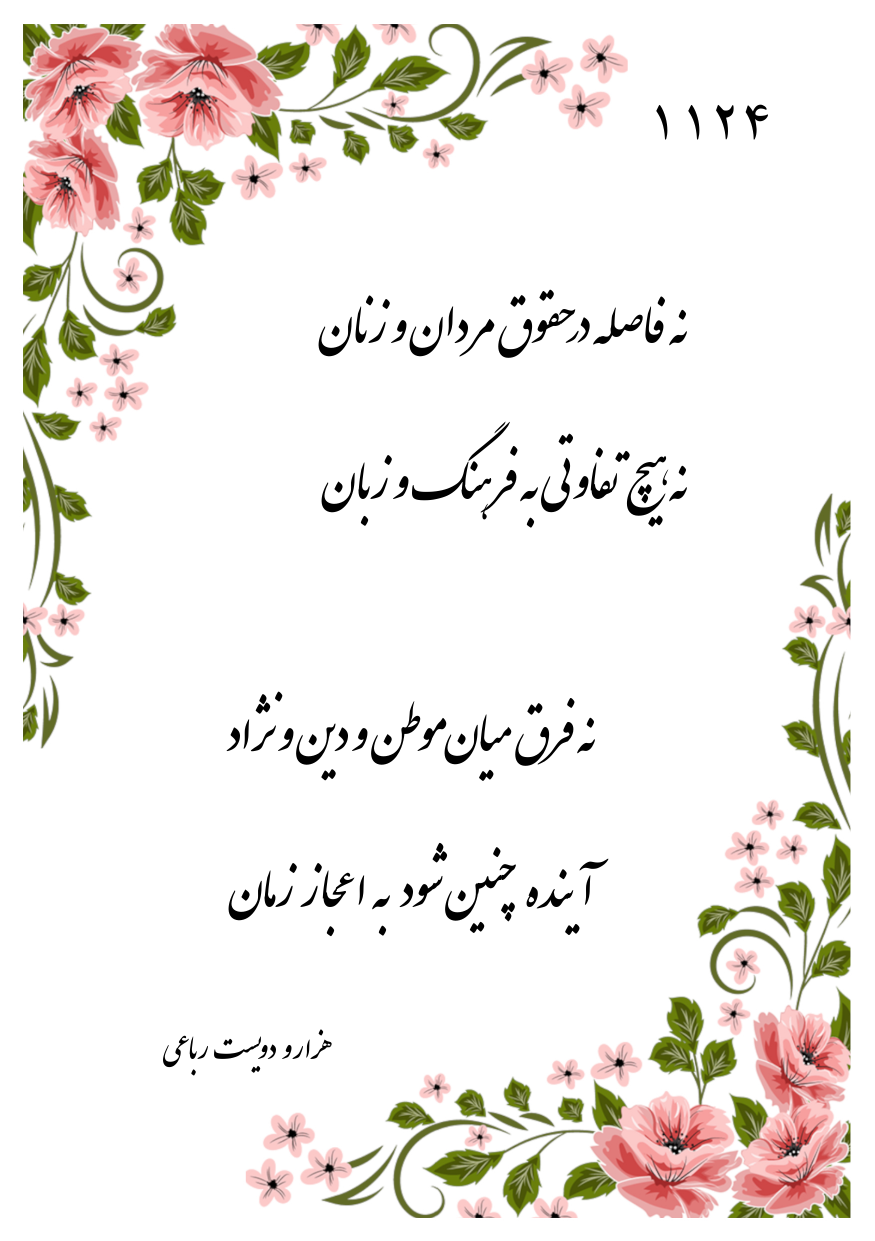 ۱۱۲۴
نه فاصله در حقوق مردان و زنان
نه هیچ تفاوتی به فرهنگ و زبان
نه فرق میان موطن و دین و نژاد
آینده چنین شود به اعجاز زمان
هزار و دویست رباعی